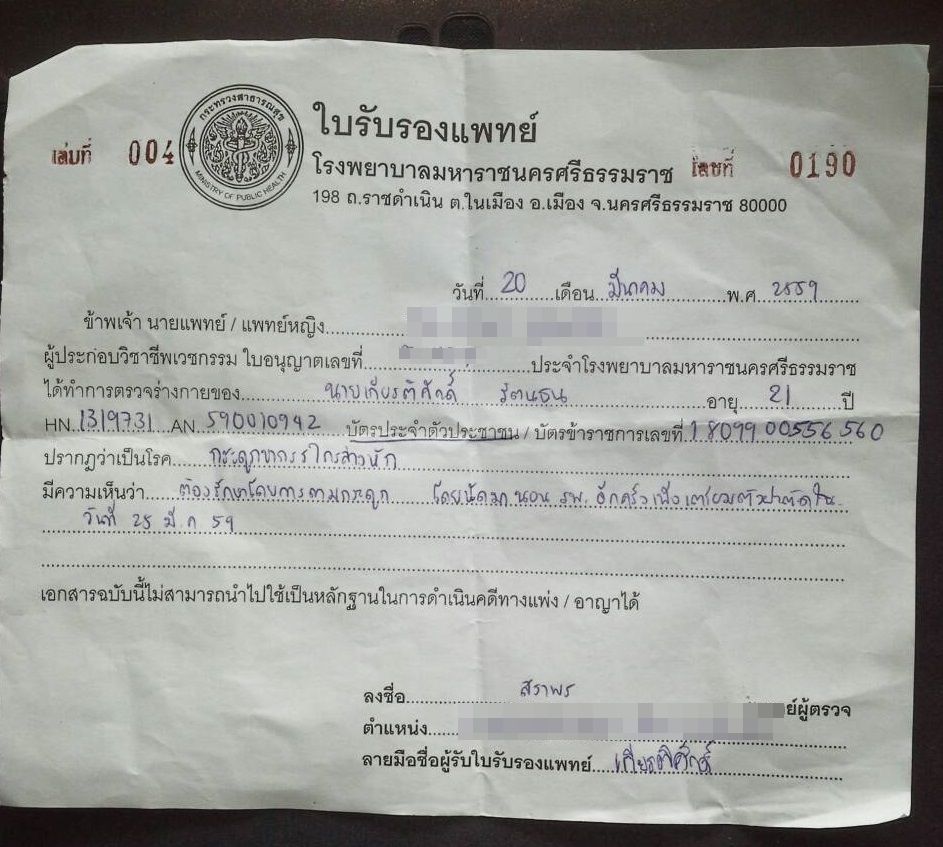 กระทรวงสาธารณสุข
MINISTRY OF PUBLIC HEALTH
ใบรับรองแพทย์
เล่มที่ 004 โรงพยาบาลมหาราชนครศรีธรรมราช เลขที่ 0190
198 ถ.ราชดำเนิน ต.ในเมือง อ.เมือง จ.นครศรีธรรมราช 80000
วันที่ 20 เดือน มีนาคม พ.ศ 2559
ข้าพเจ้า นายแพทย์ / แพทย์หญิง
ผู้ประกอบวิชาชีพเวชกรรม ใบอนุญาตเลขที่ ประจำโรงพยาบาลมหาราชนครศรีธรรมราช
ได้ทำการตรวจร่างกายของ นายเกียรติศักดิ์ รัตนธน อายุ 21 ปี
HN. 1319731 AN. 590010942 บัตรประจำตัวประชาชน / บัตรข้าราชการเลขที่ 1 8099 00556 560
ปรากฏว่าเป็นโรค กระดูกขากรรไกรล่างหัก
มีความเห็นว่า ต้องรักษาโดยการดามกระดูก โดยนัดมานอน รพ. อีกครั้งเพื่อเตรียมตัวผ่าตัดใน
วันที่ 25 มี.ค 59
เอกสารฉบับนี้ไม่สามารถนำไปใช้เป็นหลักฐานในการดำเนินคดีทางแพ่ง / อาญาได้
ลงชื่อ สราพร ย์ผู้ตรวจ
ตำแหน่ง
ลายมือชื่อผู้รับใบรับรองแพทย์ เกียรติศักดิ์